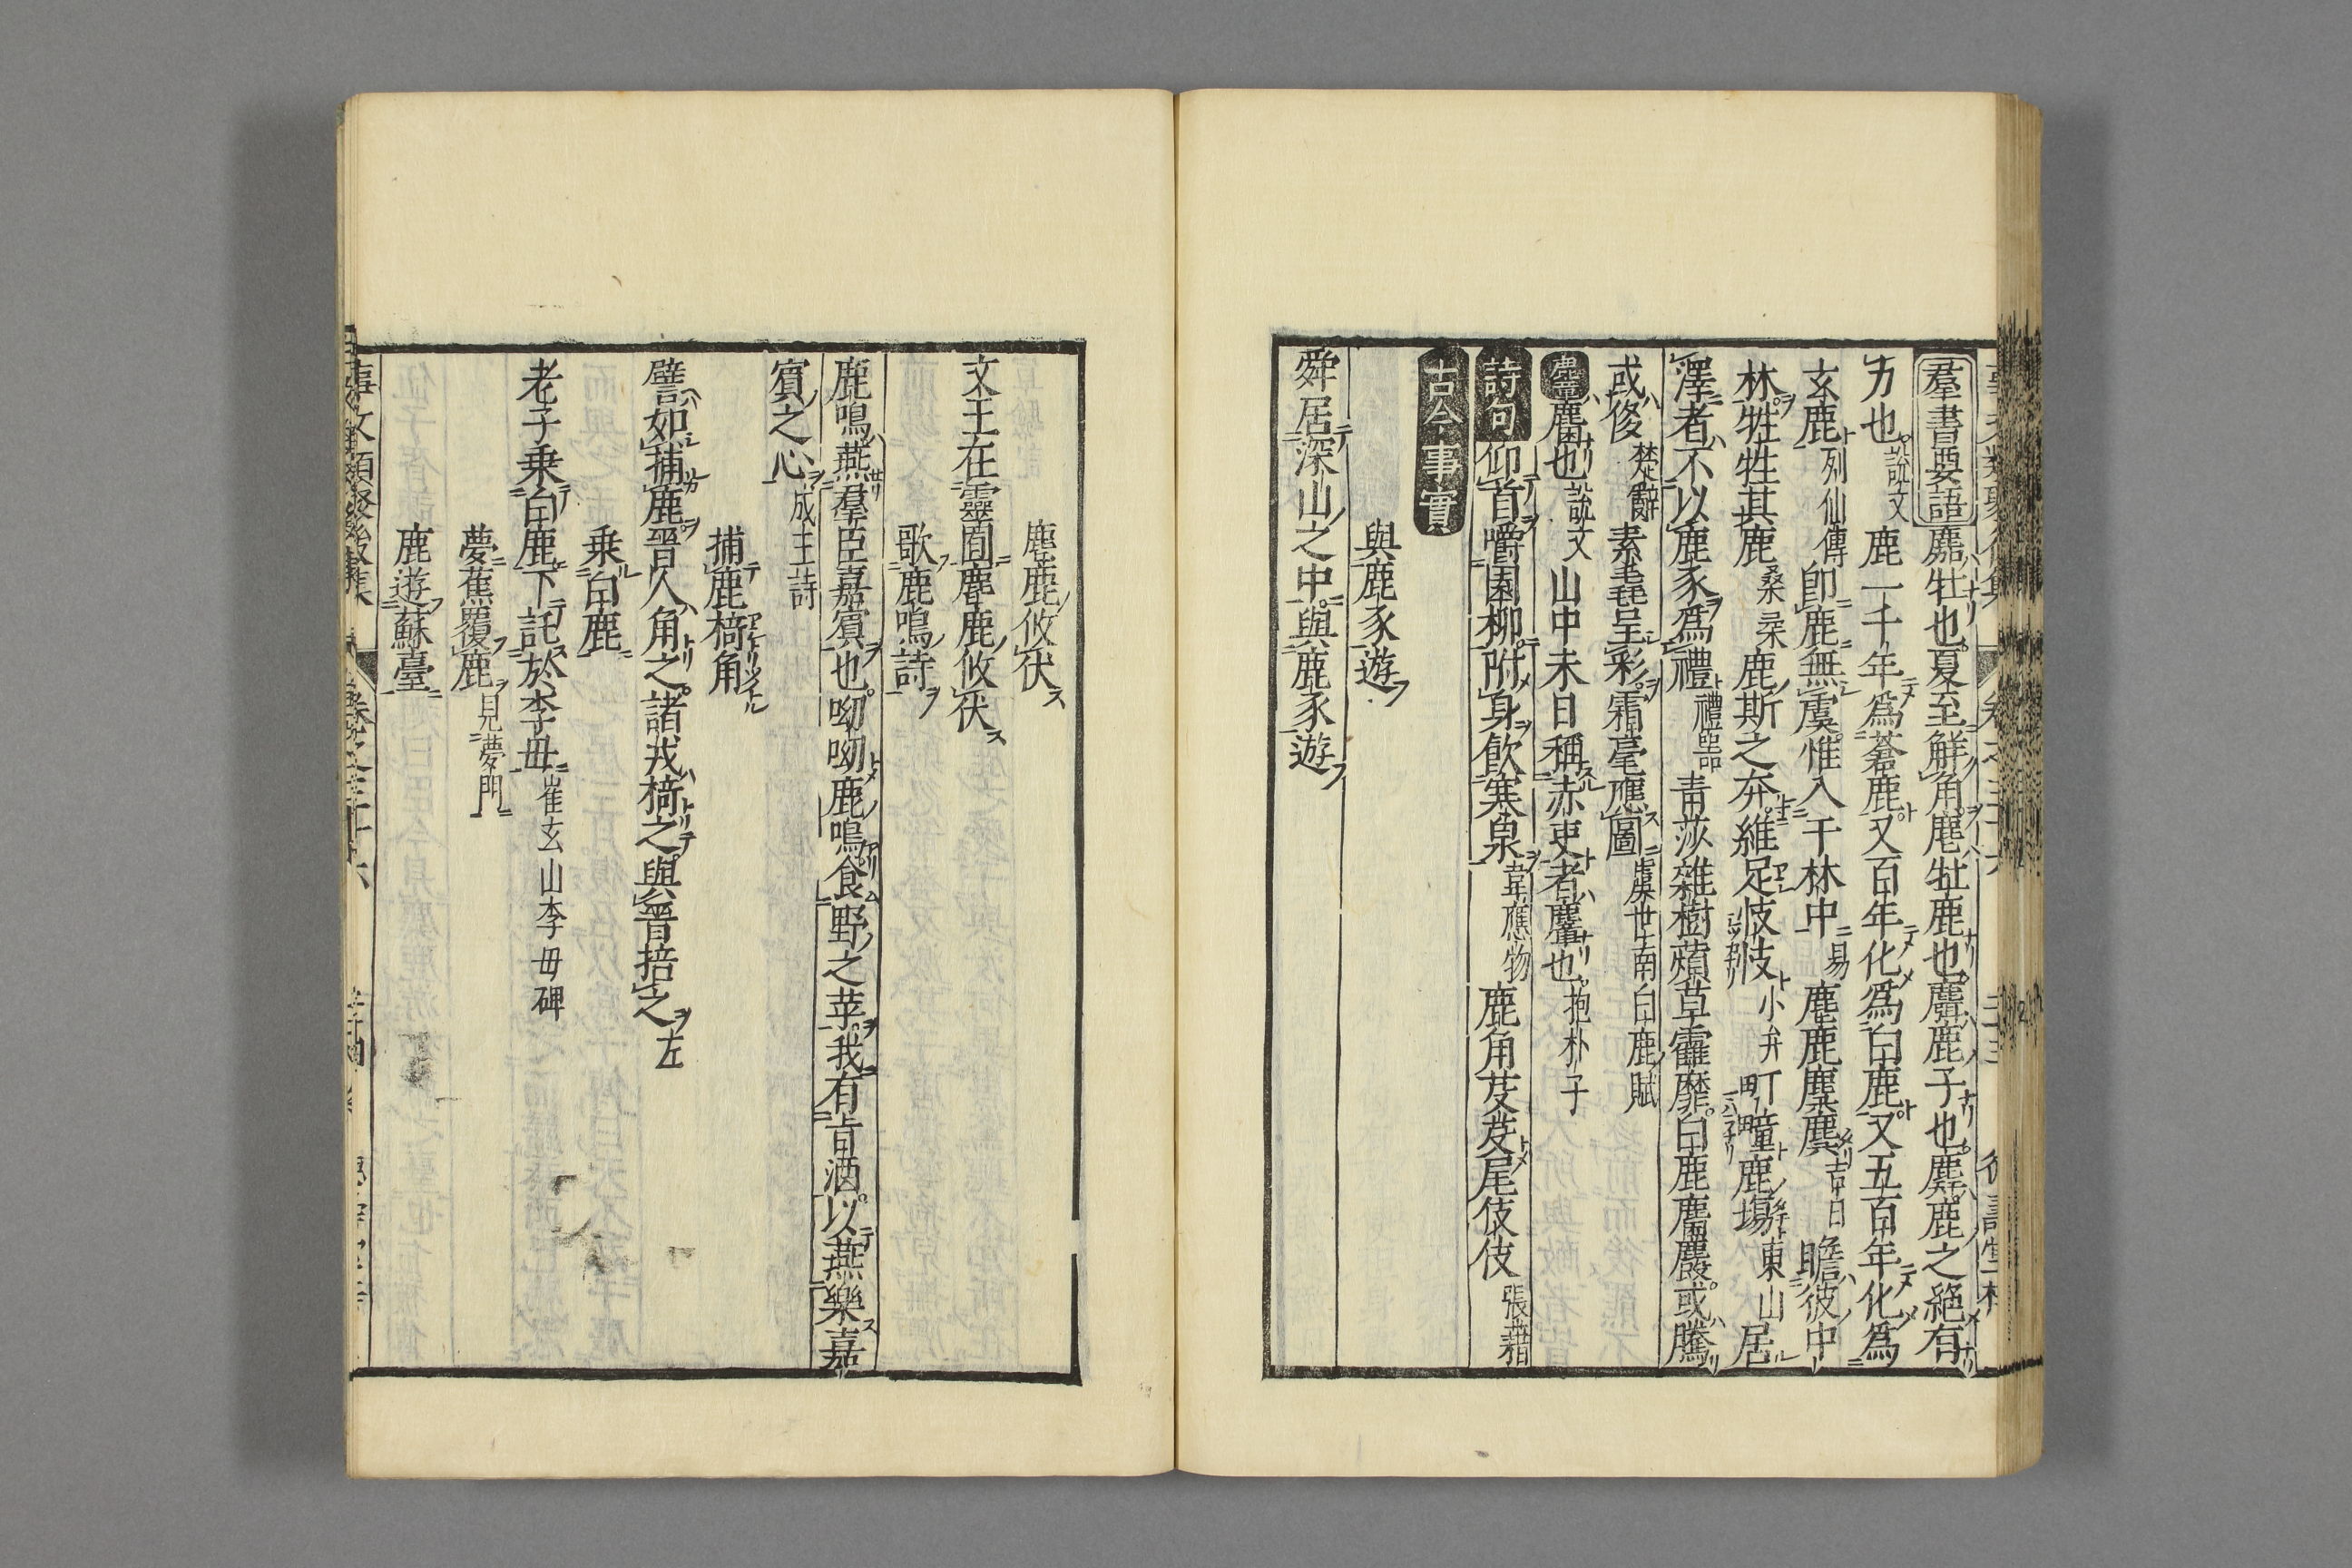 羣書要語麃牡也夏至觧角麀牡鹿也麛鹿子也麉鹿之絕有
力也說文鹿一千年爲蒼鹿又百年化爲白鹿又五百年化爲
玄鹿列仙傳卽鹿無虞惟入于林中易麀鹿麌麌吉日瞻彼中
林甡甡其鹿桑柔鹿斯之奔維足伎伎小弁町疃鹿場東山居
澤者不以鹿豕爲禮禮器青莎雜樹薠草靃靡白鹿麏麚或騰
或倚楚辭素毳呈彩霜毫應圖虞世南白鹿賦
麞麕也說文山中未日稱赤吏者麞也抱朴子
詩句仰首嚼園柳附身飲寒泉韋應物鹿角芟芟尾伎伎張籍
古今事實
與鹿豕遊
舜居深山之中與鹿豕遊
麀鹿攸伏
文王在靈囿麀鹿攸伏
歌鹿鳴詩
鹿鳴燕羣臣嘉賓也呦呦鹿鳴食野之苹我有旨酒以燕樂嘉
賓之心成王詩
捕鹿掎角
譬如捕鹿晉人角之諸戎掎之與晉掊之左
乗白鹿
老子乗白鹿下託於李母崔玄山李母碑
夢蕉覆鹿見夢門
鹿遊蘇臺
事文類聚後集 卷之三十六